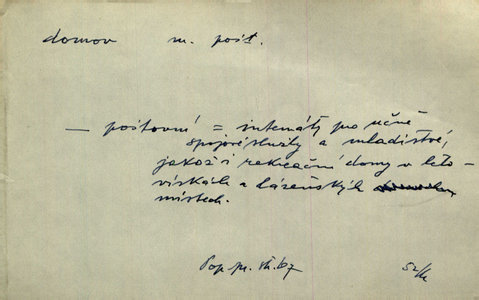 domov m. pošt.
— poštovní = internáty pro učně
spojové služby a mladistvé,
jakož i rekreační domy v leto-
viskách a lázeňských
místech.
Pop. pr. str. 67
52/